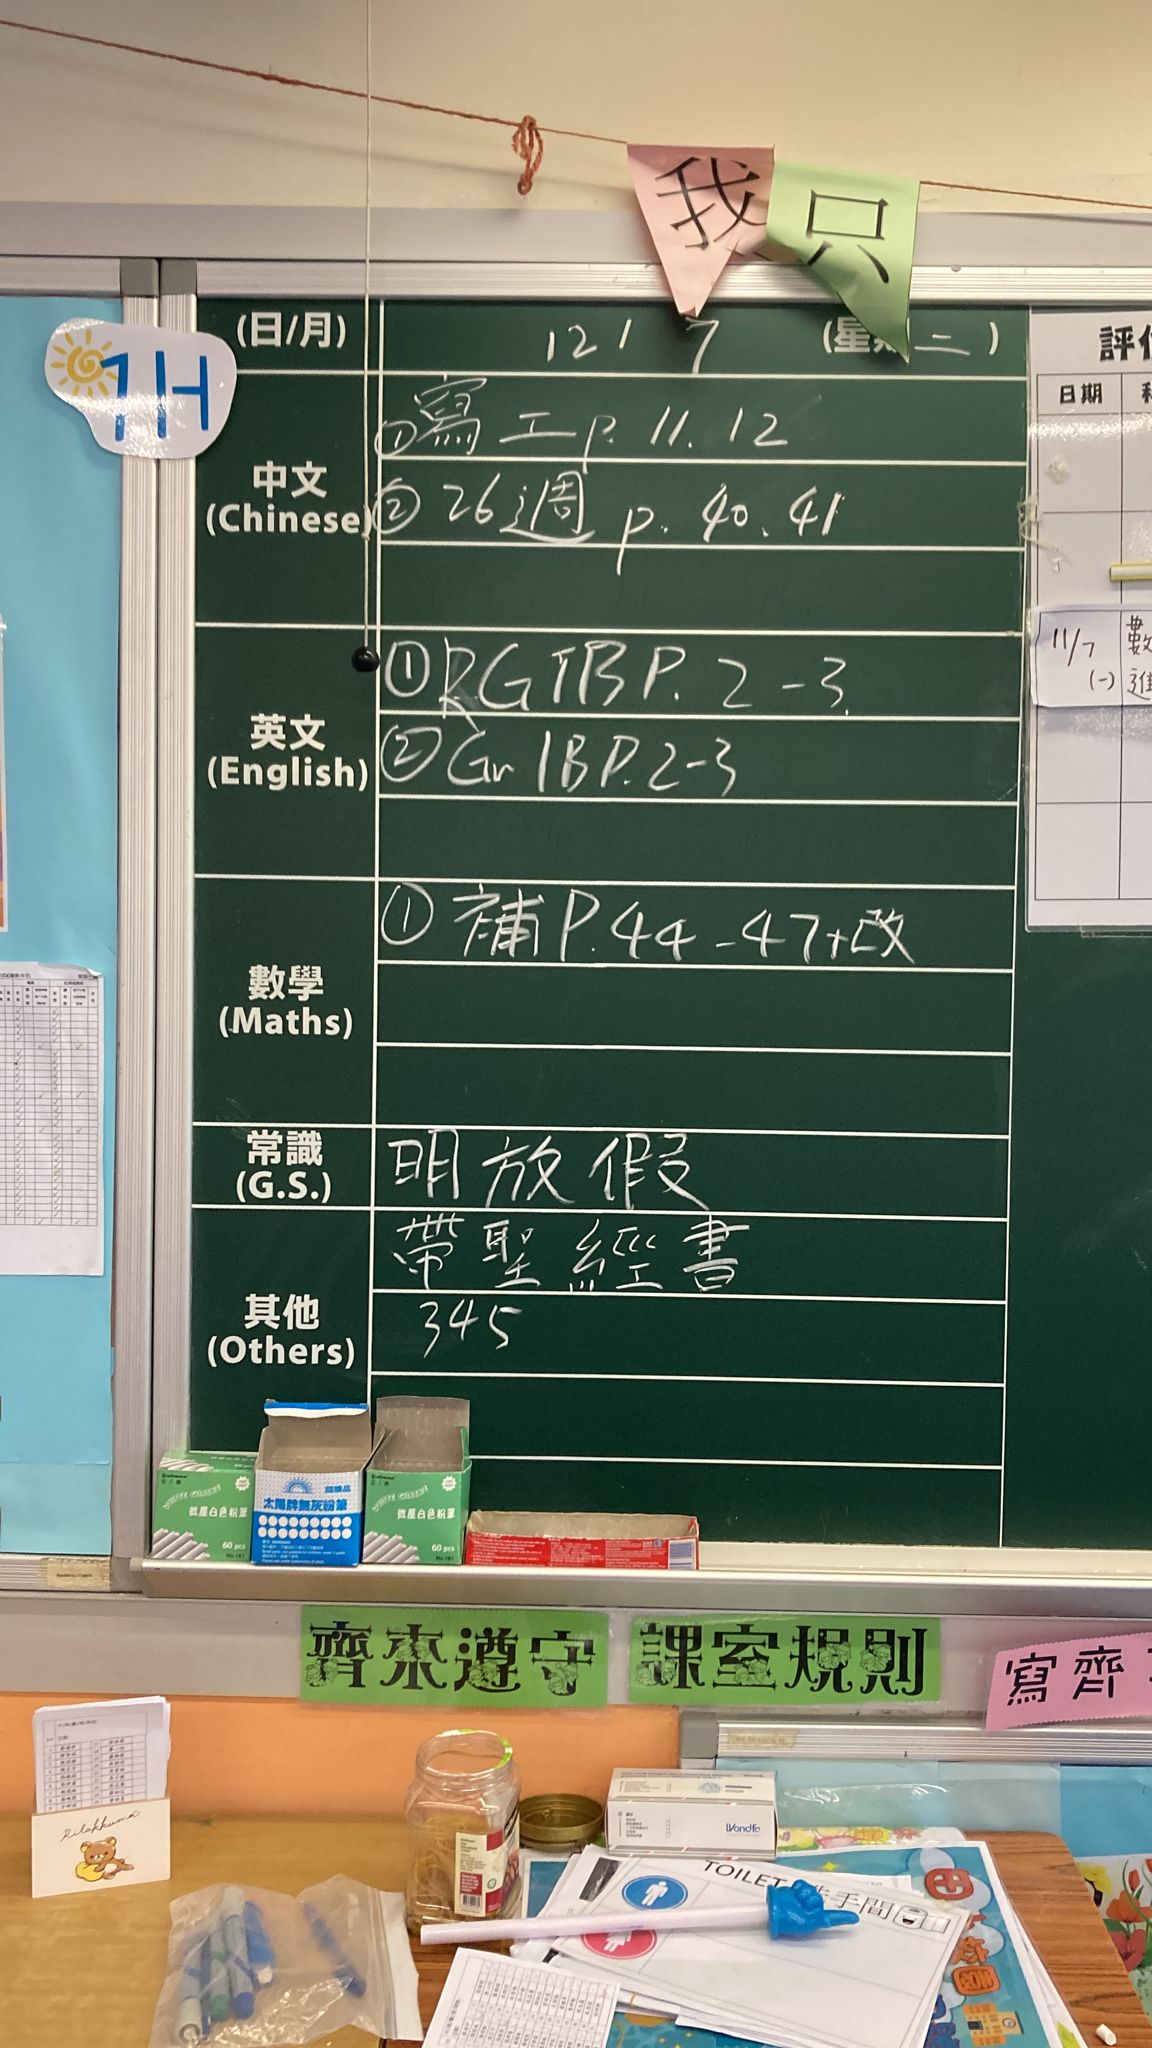 我只
1H
(日/月) 12 / 7 (星期二)
中文
(Chinese)
① 寫工 p. 11. 12
② 26週 p. 40. 41
英文
(English)
① RGTB P. 2 - 3.
② Gr 1B P. 2-3
數學
(Maths)
① 補 P. 44 - 47+改
常識
(G.S.)
明放假
其他
(Others)
帶聖經書
345
日期
11/7
(一)
數
進
超級品
太陽牌無灰粉筆
微塵白色粉筆
60 pcs
No.181
WHITE CHALK
微塵白色粉筆
60 pcs
No.181
齊來遵守
課室規則
寫齊
rilakkuma
Wondfo
TOILET 洗手間